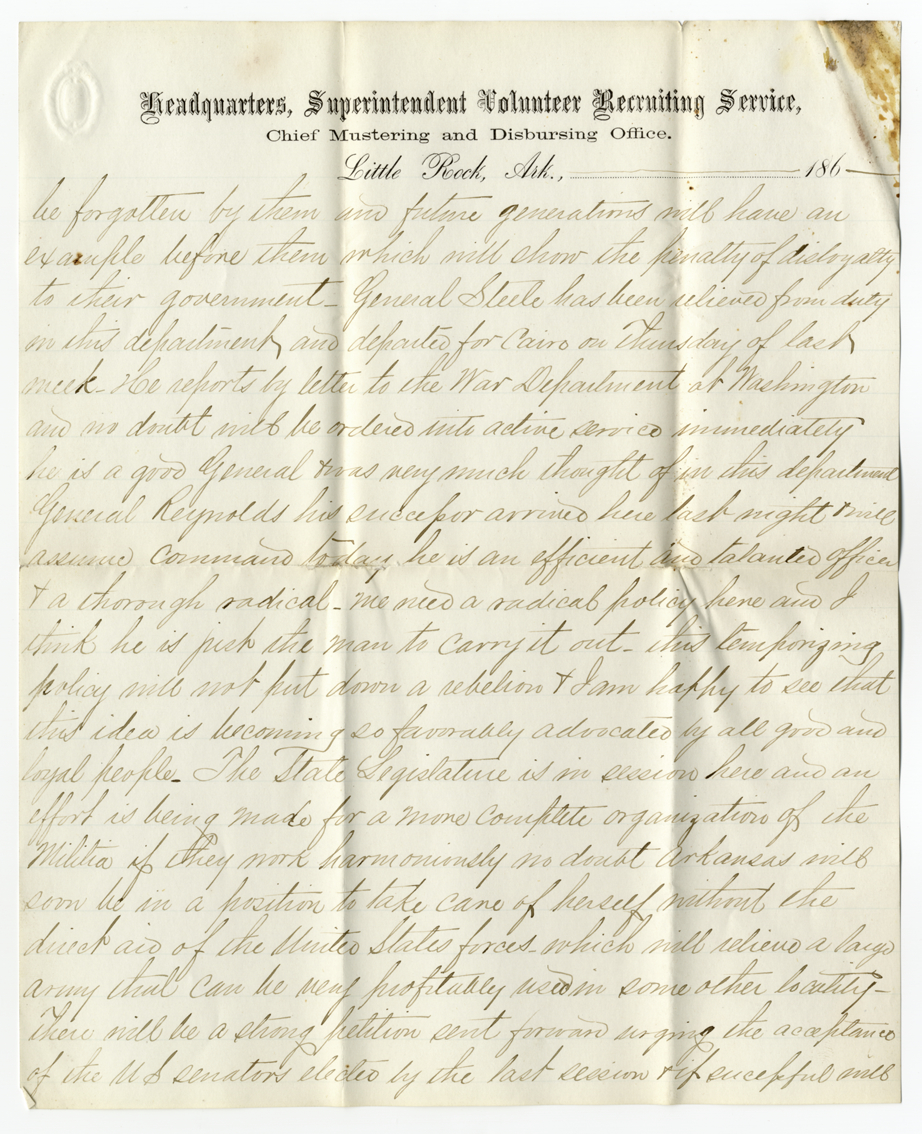 Headquarters, Superintendent Volunteer Recruiting Service,
Chief Mustering and Disbursing Office.
Little Rock, Ark., 186
be forgotten by them and future generations will have an
example before them which will show the penalty of disloyalty
to their government - General Steele has been relieved from duty
in this department, and departed for Cairo on Thursday of last
week - He reports by letter to the War Department at Washington
and no doubt will be ordered into active service immediately
he is a good General & was very much thought of in this department
General Reynolds his successor arrived here last night & will
assume command today he is an efficient and talanted officer
& a thorough radical - We need a radical policy here and I
think he is just the man to carry it out - this temporizing
policy will not put down a rebelion & I am happy to see that
this idea is becoming so favorably advocated by all good and
loyal people - The State Legislature is in session here and an
effort is being made for a more complete organization of the
Militia if they work harmoniously no doubt Arkansas will
soon be in a position to take care of herself without the
direct aid of the United States forces - which will relieve a large
army that can be very profitably used in some other locality -
There will be a strong petition sent forward urging the acceptance
of the U S senators elected by the last session & if sucessful will